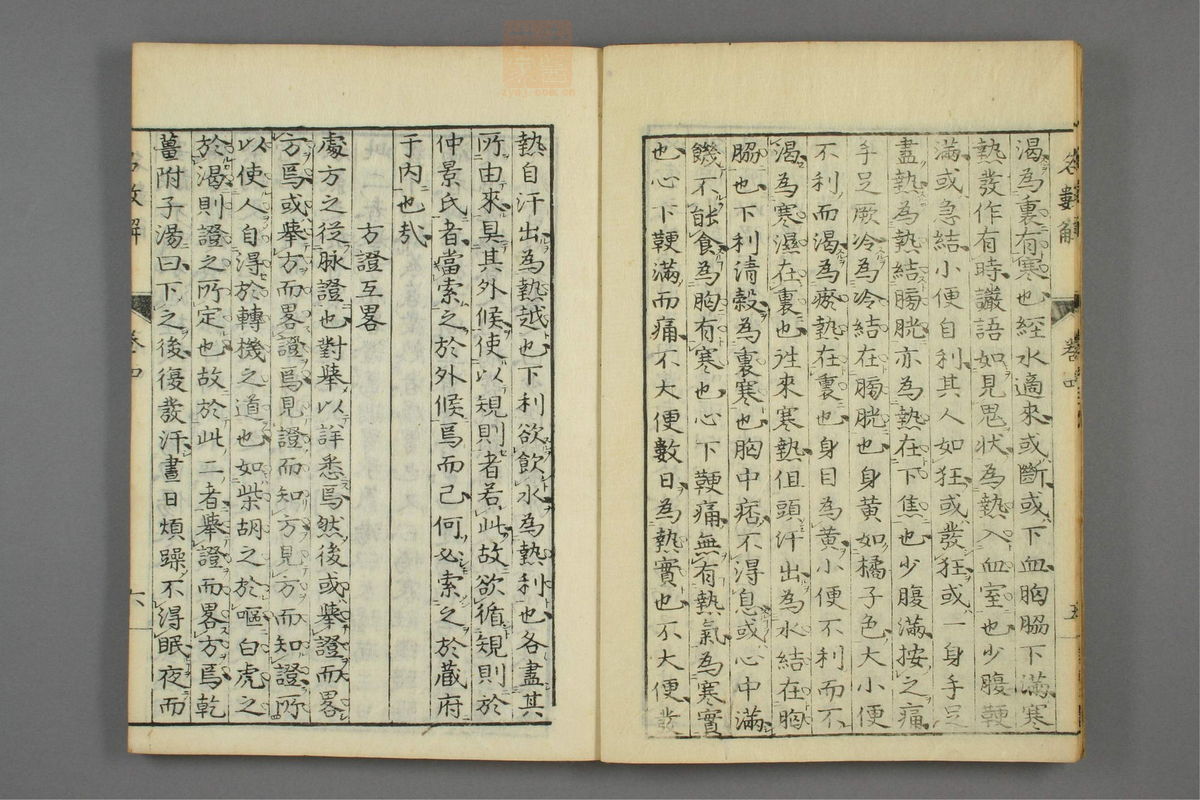 渴為裏有寒也經水適來或斷或下血胸脇下滿寒
熱發作有時讝語如見鬼狀為熱入血室也少腹鞕
滿或急結小便自利其人如狂或發狂或一身手足
盡熱為熱結膀胱亦為熱在下焦也少腹滿按之痛
手足厥冷為冷結在膀胱也身黃如橘子色大小便
不利而渴為瘀熱在裏也身目為黃小便不利而不
渴為寒濕在裏也往來寒熱但頭汗出為水結在胸
脇也下利清穀為裏寒也胸中痞不得息或心中滿
饑不能食為胸有寒也心下鞕痛無有熱氣為寒實
也心下鞕滿而痛不大便數日為熱實也不大便發
名數解
卷四
五
熱自汗出為熱越也下利欲飲水為熱利也各盡其
所由來具其外候使以規則者若此故欲循規則於
仲景氏者當索之於外候焉而已何必索之於藏府
于內也哉
方證互畧
處方之從脉證也對舉以詳悉焉然後或舉證而畧
方焉或舉方而畧證焉見證而知方見方而知證所
以使人自得於轉機之道也如柴胡之於嘔白虎之
於渴則證之所定也故於此二者舉證而畧方焉乾
薑附子湯曰下之後復發汗晝日煩躁不得眠夜而
名數解
卷四
六
zysj.com.cn